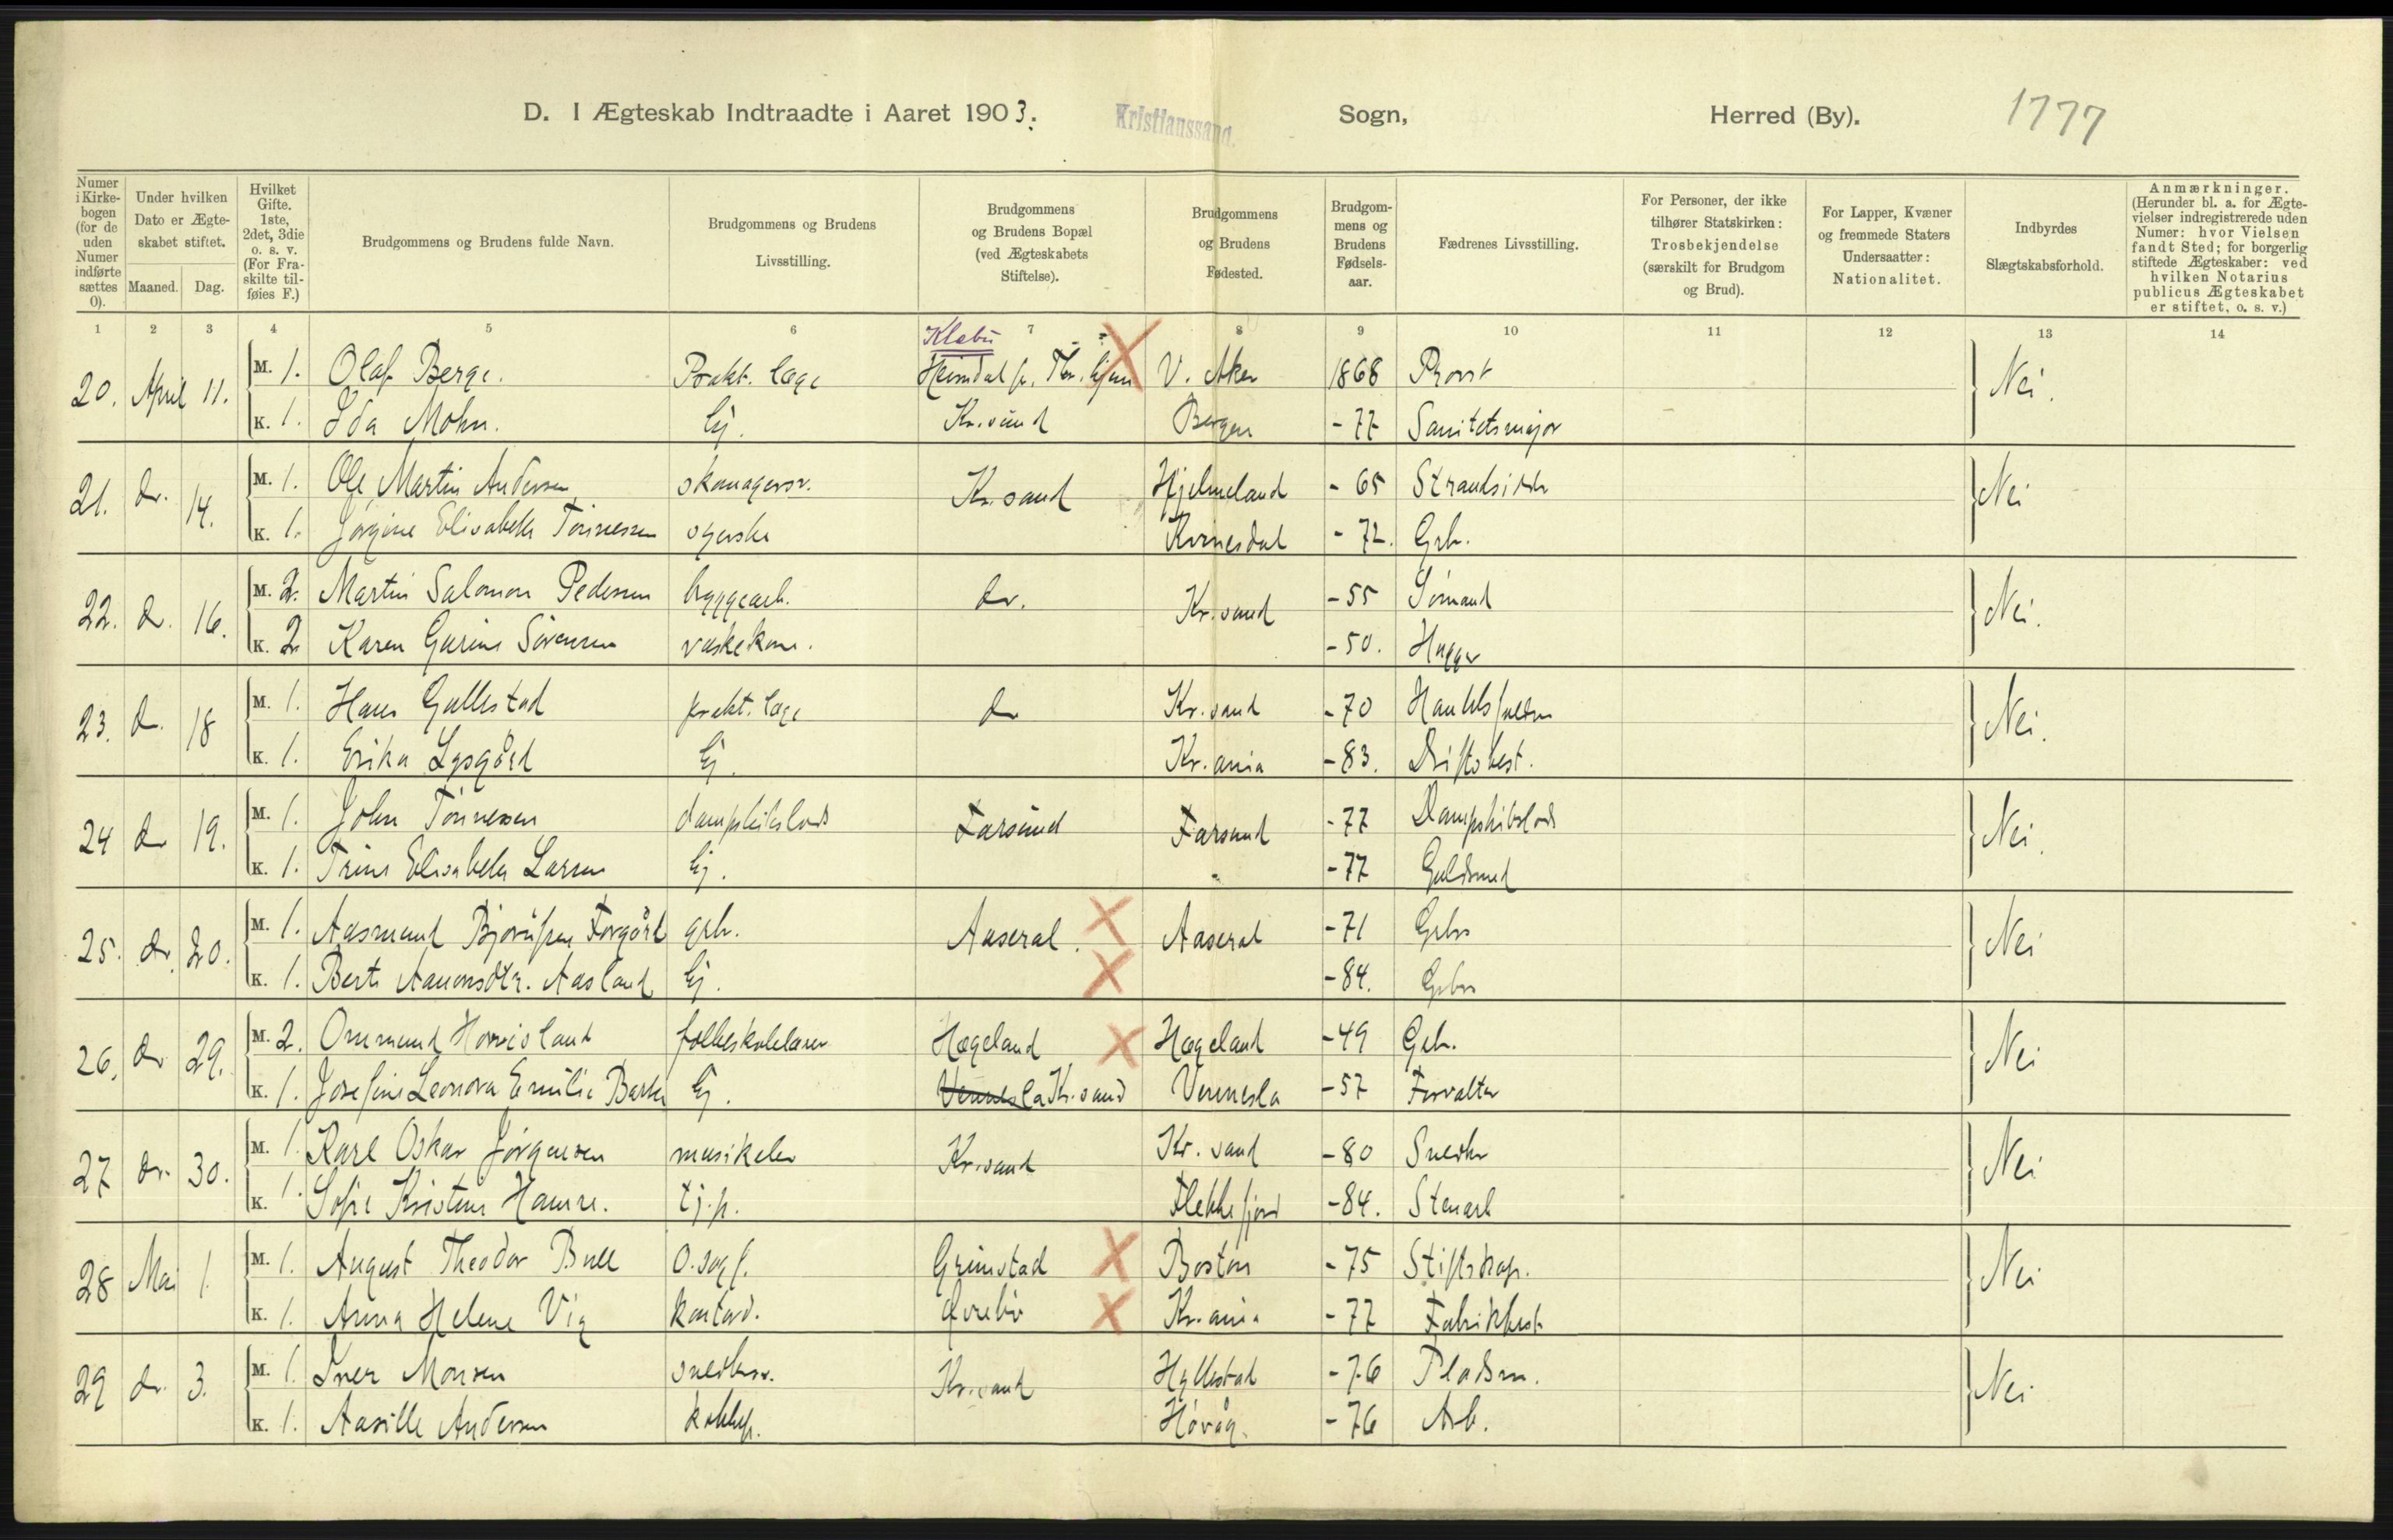 D. I Ægteskab Indtraadte i Aaret 1903. Kristianssand. Sogn, Herred (By). 1777
Numer i Kirkebogen (for de uden Numer indførte sættes 0).
Under hvilken Dato er Ægteskabet stiftet.
Maaned. Dag.
Hvilket Gifte. 1ste, 2det, 3die o. s. v. (For Fraskilte tilføies F.)
Brudgommens og Brudens fulde Navn.
Brudgommens og Brudens Livsstilling.
Brudgommens og Brudens Bopæl (ved Ægteskabets Stiftelse).
Brudgommens og Brudens Fødested.
Brudgommens og Brudens Fødselsaar.
Fædrenes Livsstilling.
For Personer, der ikke tilhører Statskirken: Trosbekjendelse (særskilt for Brudgom og Brud).
For Lapper, Kvæner og fremmede Staters Undersaatter: Nationalitet.
Indbyrdes Slægtskabsforhold.
Anmærkninger. (Herunder bl. a. for Ægtevielser indregistrerede uden Numer: hvor Vielsen fandt Sted; for borgerlig stiftede Ægteskaber: ved hvilken Notarius publicus Ægteskabet er stiftet, o. s. v.)
1 2 3 4 5 6 7 8 9 10 11 12 13 14
Klæbu
20. April 11. M. 1. Olaf Berge. Prakt. læge Heimdal V. Aker 1868 Provst Nei.
K. 1. Ida Mohn. Ej. Kr.sund Bergen -77 Sanitetsmajor
21. do. 14. M. 1. Ole Martin Andersen skomagersv. Kr.sand Hjelmeland -65 Strandsidder Nei
K. 1. Jørgine Elisabeth Tønnessen syerske Kvinesdal -72. Grb.
22. do. 16. M. 2. Martin Salomon Pedersen byggearb. do. Kr.sand -55 Sømand Nei.
K. 2 Karen Gurine Sørensen vaskekone. -50. Hugger
23. do. 18 M. 1. Hans Gallestad prakt. læge do Kr.sand -70 Handelsfuldm Nei.
K. 1. Erika Lysgård Ej. Kr.ania -83. Driftsbest.
24 do 19. M. 1. John Tønnesen dampskibslods Farsund Farsund -77 Dampskibslods Nei.
K. 1. Trine Elisabeth Larsen Ej. " -77 Guldsmed
25. do. 20. M. 1. Aasmund Bjorulfsen Forgård grb. Aaseral. Aaseral -71 Grbr Nei
K. 1. Berte Aanonsdtr. Aasland Ej. -84. Grbr
26. do 29. M. 2. Ommund Homisland folkeskolelærer Hægeland Hægeland -49 Grb. Nei
K. 1. Josefine Leonora Emilie Ej. Vennesla Kr.sand Vennesla -57 Forvalter
27 do. 30. M. 1. Karl Oskar Jørgensen musikelev Kr.sand Kr.sand -80 Snedker Nei
K. 1. Sofie Kristine Hamre. tj.p. Flekkefjord -84. Stenarb
28 Mai 1. M. 1. August Theodor Bull O.sagf. Grimstad Boston -75 Stiftskap. Nei
K. 1. Anna Helene Vig kontord. Øvrebø Kr.ania -77 Fabrikbest.
29 do. 3. M. 1. Iver Monsen snedkersv. Kr.sand Hyllestad -76 Pladsm. Nei
K. 1. Aasille Andersen kokkep. Høvåg. -76 Arb.